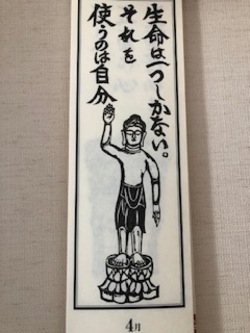 生命は一つしかない。
それを
使うのは自分
4月